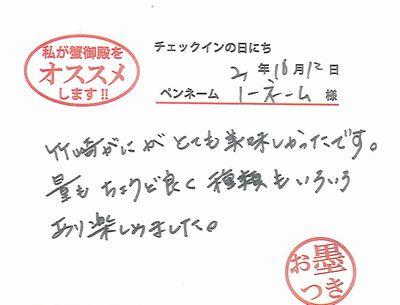 私が蟹御殿を
オススメ
します!!
チェックインの日にち
21年10月12日
ペンネーム トーネーム 様
竹崎がにがとても美味しかったです。
量もちょうど良く種類もいろいろ
あり楽しめました。
お墨
つき